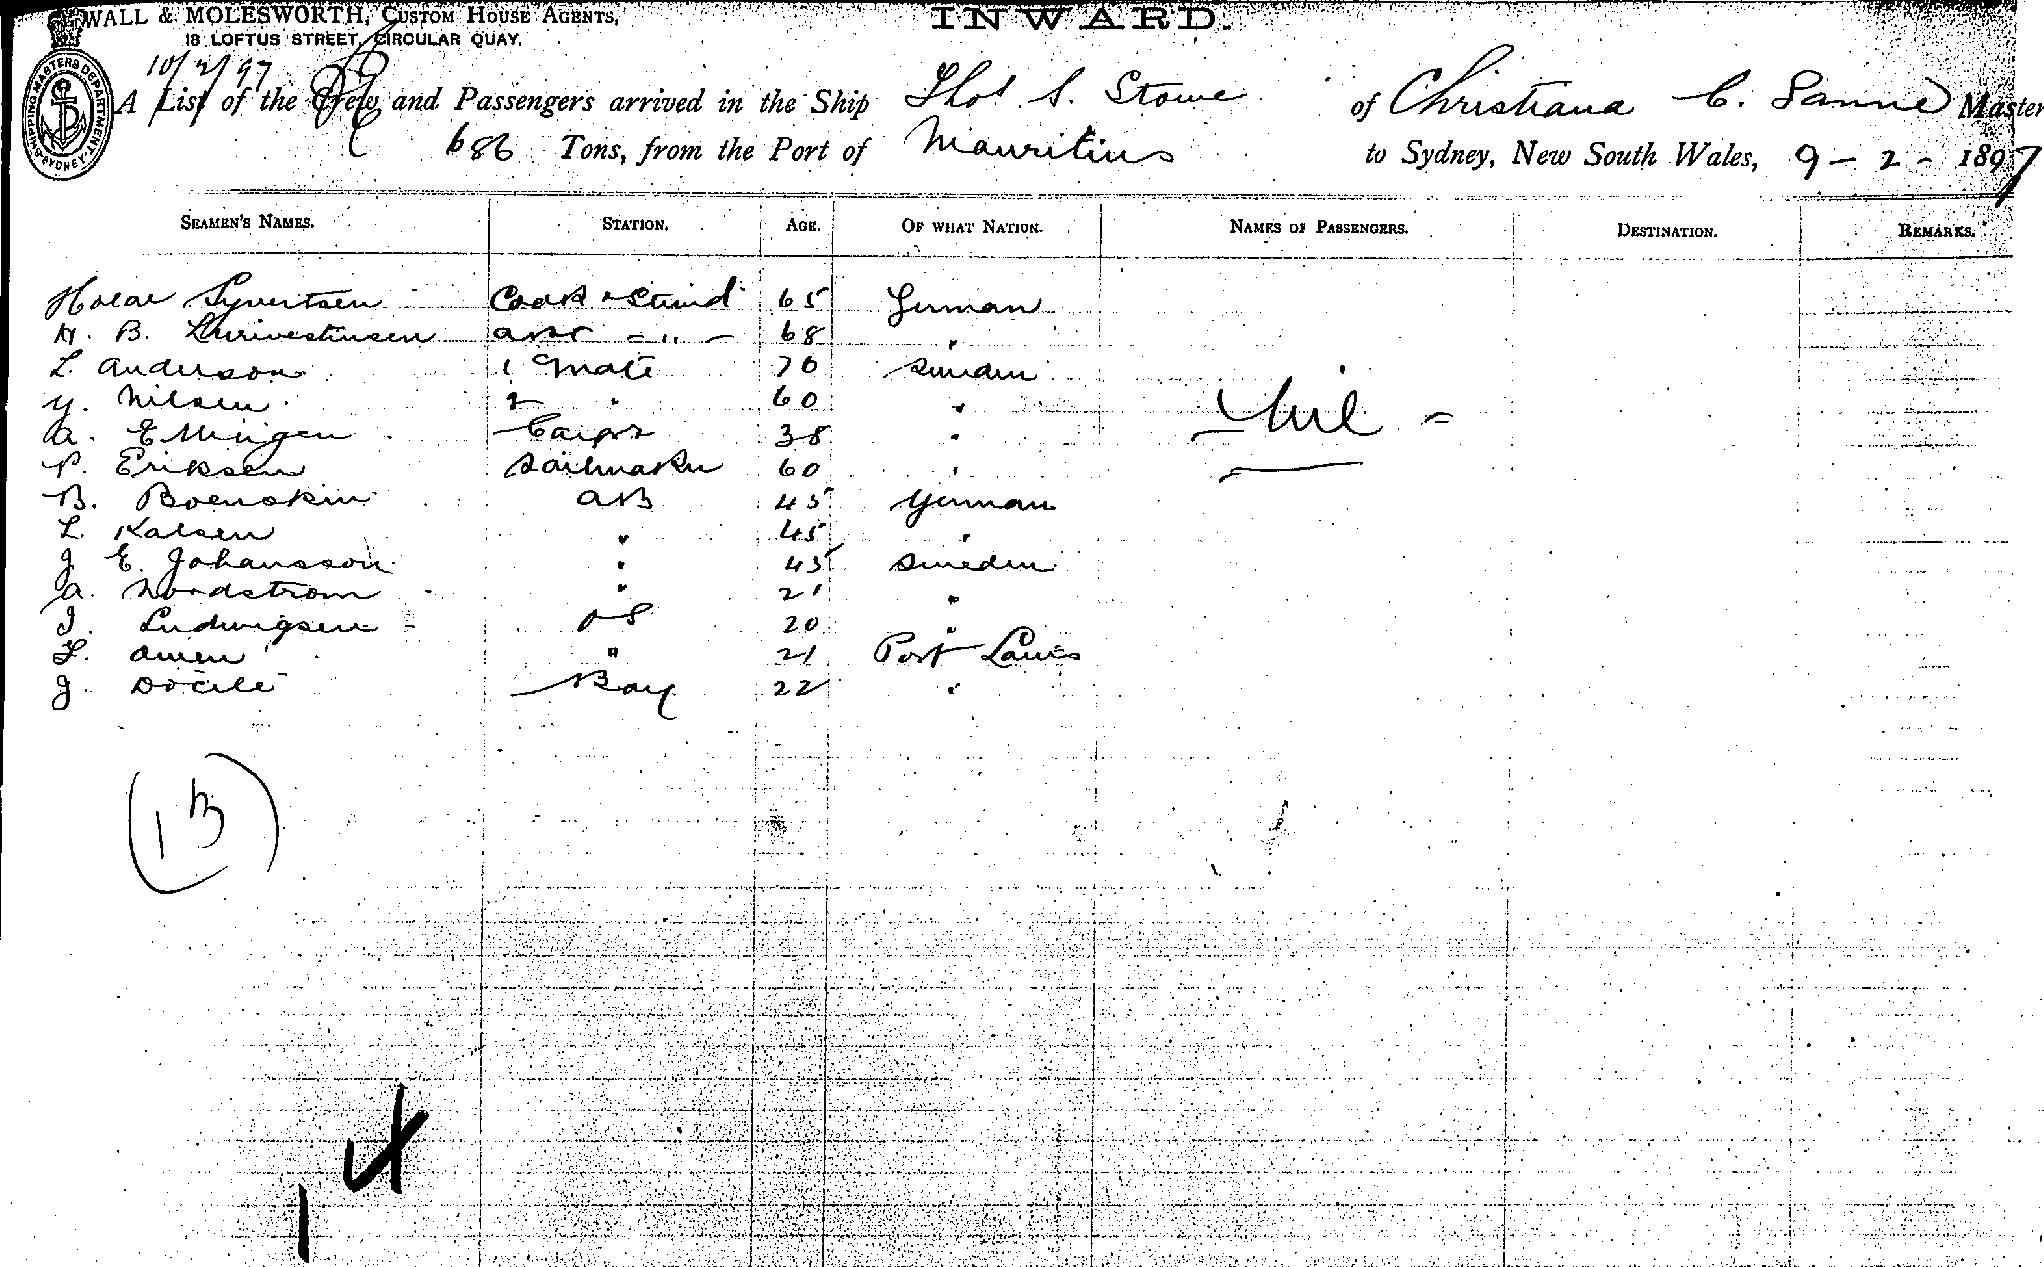 WALL & MOLESWORTH, CUSTOM HOUSE AGENTS,
18 LOFTUS STREET, CIRCULAR QUAY.
INWARD.
SHIPPING MASTERS DEPARTMENT SYDNEY
10/2/97
A List of the Crew and Passengers arrived in the Ship Thos S. Stowe of Christiana C. Sanne Master
686 Tons, from the Port of Mauritius to Sydney, New South Wales, 9 - 2 - 1897
SEAMEN'S NAMES. STATION. AGE. OF WHAT NATION. NAMES OF PASSENGERS. DESTINATION. REMARKS.
Syvertsen Cook & Stwd 65 German
H. B. asst " 68 "
L. Anderson 1 Mate 70 Sweden
Y. Nilsen 2 " 60 "
A. Ellingen Carptr 38 "
P. Eriksen Sailmaker 60 "
B. Boenskin AB 45 German
L. Kalsen " 45 "
J. E. Johansson " 43 Sweden
A. Nordstrom " 21 "
I. Ludwigsen OS 20 "
L. Owen " 21 Port Louis
J. Docile Boy 22 "
Nil
(13)
14